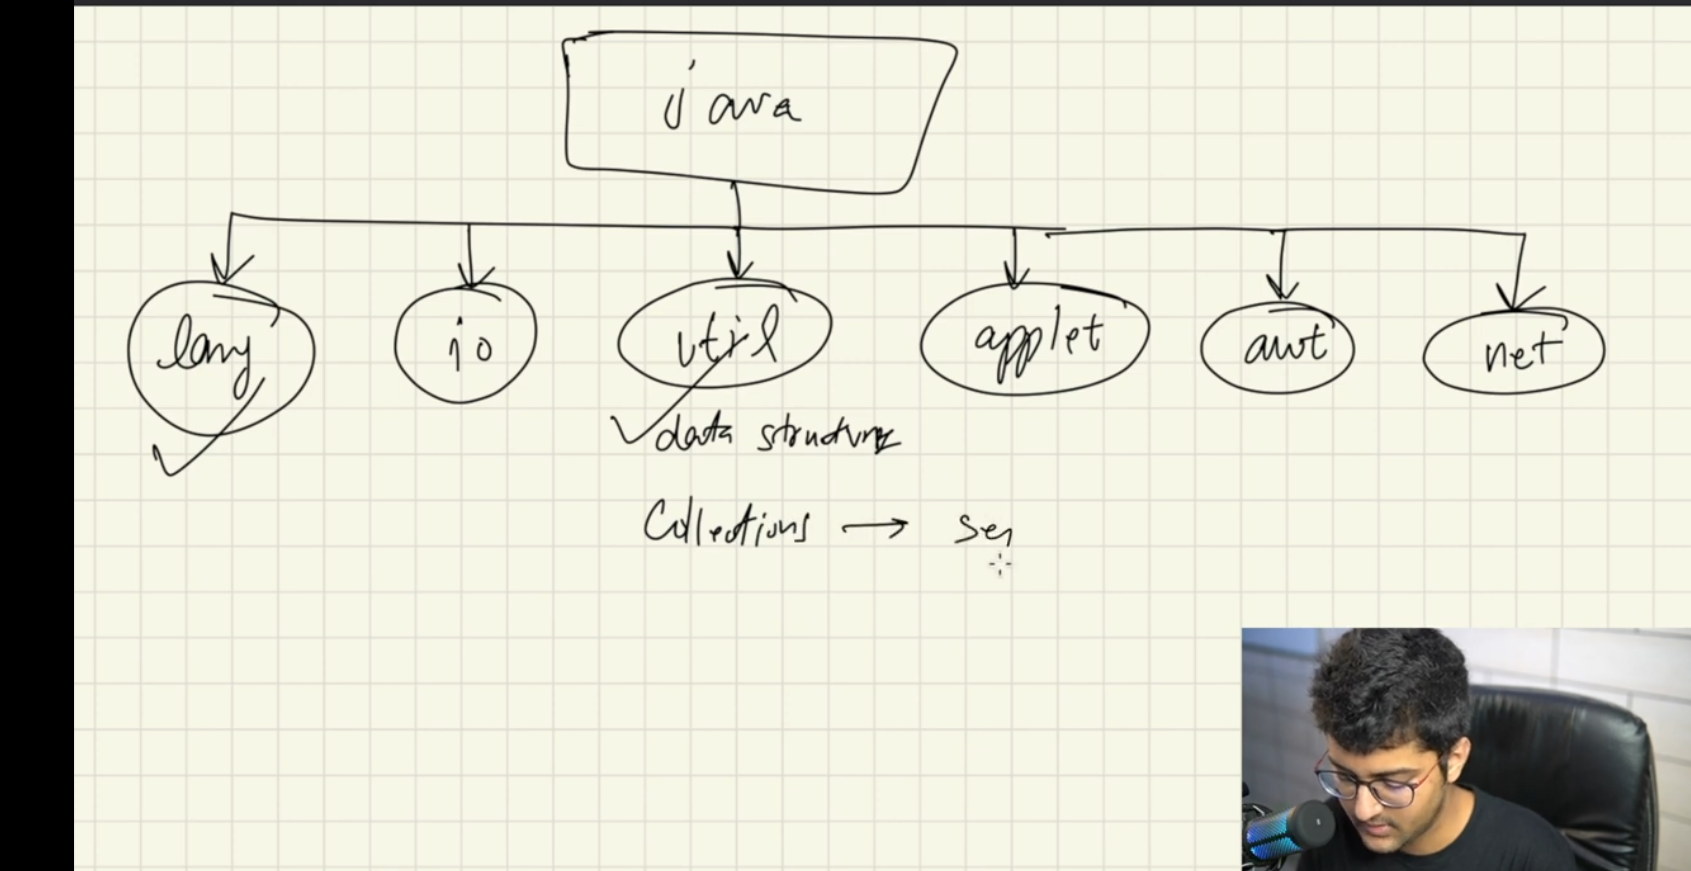 java
lang
io
util
applet
awt
net
data structure
Collections → Ser